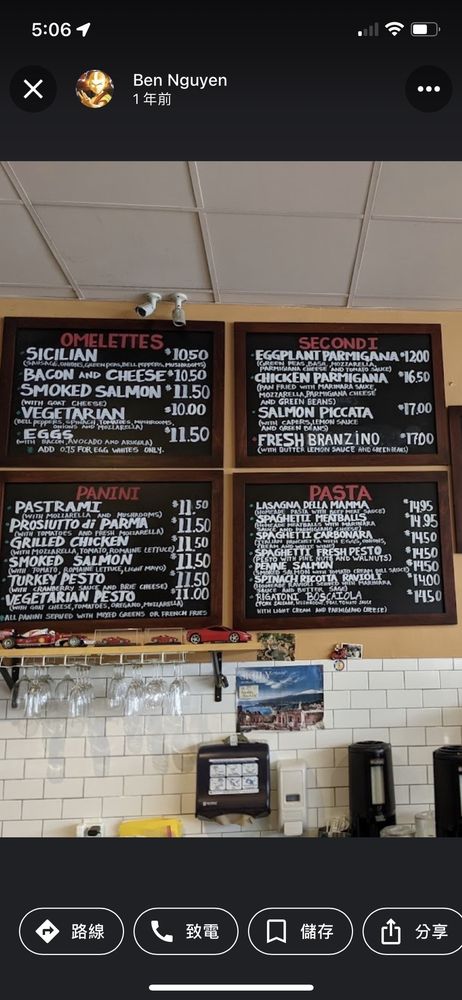 5:06
Ben Nguyen
1 年前
OMELETTES
SICILIAN $10.50
(SAUSAGE, ONIONS, GREEN PEAS, BELL PEPPERS, MUSHROOMS)
BACON AND CHEESE $10.50
SMOKED SALMON $11.50
(WITH GOAT CHEESE)
VEGETARIAN $10.00
(BELL PEPPERS, SPINACH, TOMATOES, MUSHROOMS,
ONIONS AND MOZZARELLA)
EGGS $11.50
(WITH BACON, AVOCADO AND ARUGULA)
ADD 0.75 FOR EGG WHITES ONLY.
SECONDI
EGGPLANT PARMIGIANA $12.00
(GREEN PEAS, BASIL, MOZZARELLA,
PARMIGIANA CHEESE AND TOMATO SAUCE)
CHICKEN PARMIGIANA $16.50
(PAN FRIED WITH MARINARA SAUCE,
MOZZARELLA, PARMIGIANA CHEESE
AND GREEN BEANS)
SALMON PICCATA $17.00
(WITH CAPERS, LEMON SAUCE
AND GREEN BEANS)
FRESH BRANZINO $17.00
(WITH BUTTER LEMON SAUCE AND GREEN BEANS)
PANINI
PASTRAMI $11.50
(WITH MOZZARELLA AND MUSHROOMS)
PROSIUTTO di PARMA $11.50
(WITH TOMATOES AND FRESH MOZZARELLA)
GRILLED CHICKEN $11.50
(WITH MOZZARELLA, TOMATO, ROMAINE LETTUCE)
SMOKED SALMON $11.50
(WITH TOMATO, ROMAINE LETTUCE, LIGHT MAYO)
TURKEY PESTO $11.50
(WITH CRANBERRY SAUCE AND BRIE CHEESE)
VEGETARIAN PESTO $11.00
(WITH GOAT CHEESE, TOMATOES, OREGANO, MOZZARELLA)
ALL PANINI SERVED WITH MIXED GREENS OR FRENCH FRIES
PASTA
LASAGNA DELLA MAMMA $14.95
(HOMEMADE PASTA WITH BEEF MEAT SAUCE)
SPAGHETTI MEATBALLS $14.95
(HOMEMADE MEATBALLS WITH MARINARA
SPAGHETTI CARBONARA $14.50
(ITALIAN PANCHETTA WITH EGGS, ONIONS,
SPAGHETTI FRESH PESTO $14.50
(PESTO WITH PINE NUTS AND WALNUTS)
PENNE SALMON $14.50
(SMOKED SALMON WITH TOMATO CREAM DILL SAUCE)
SPINACH RICOTTA RAVIOLI $14.00
SAUCE AND BUTTER SAGE)
RIGATONI BOSCAIOLA $14.50
WITH LIGHT CREAM AND PARMIGIANA CHEESE)
路線
致電
儲存
分享